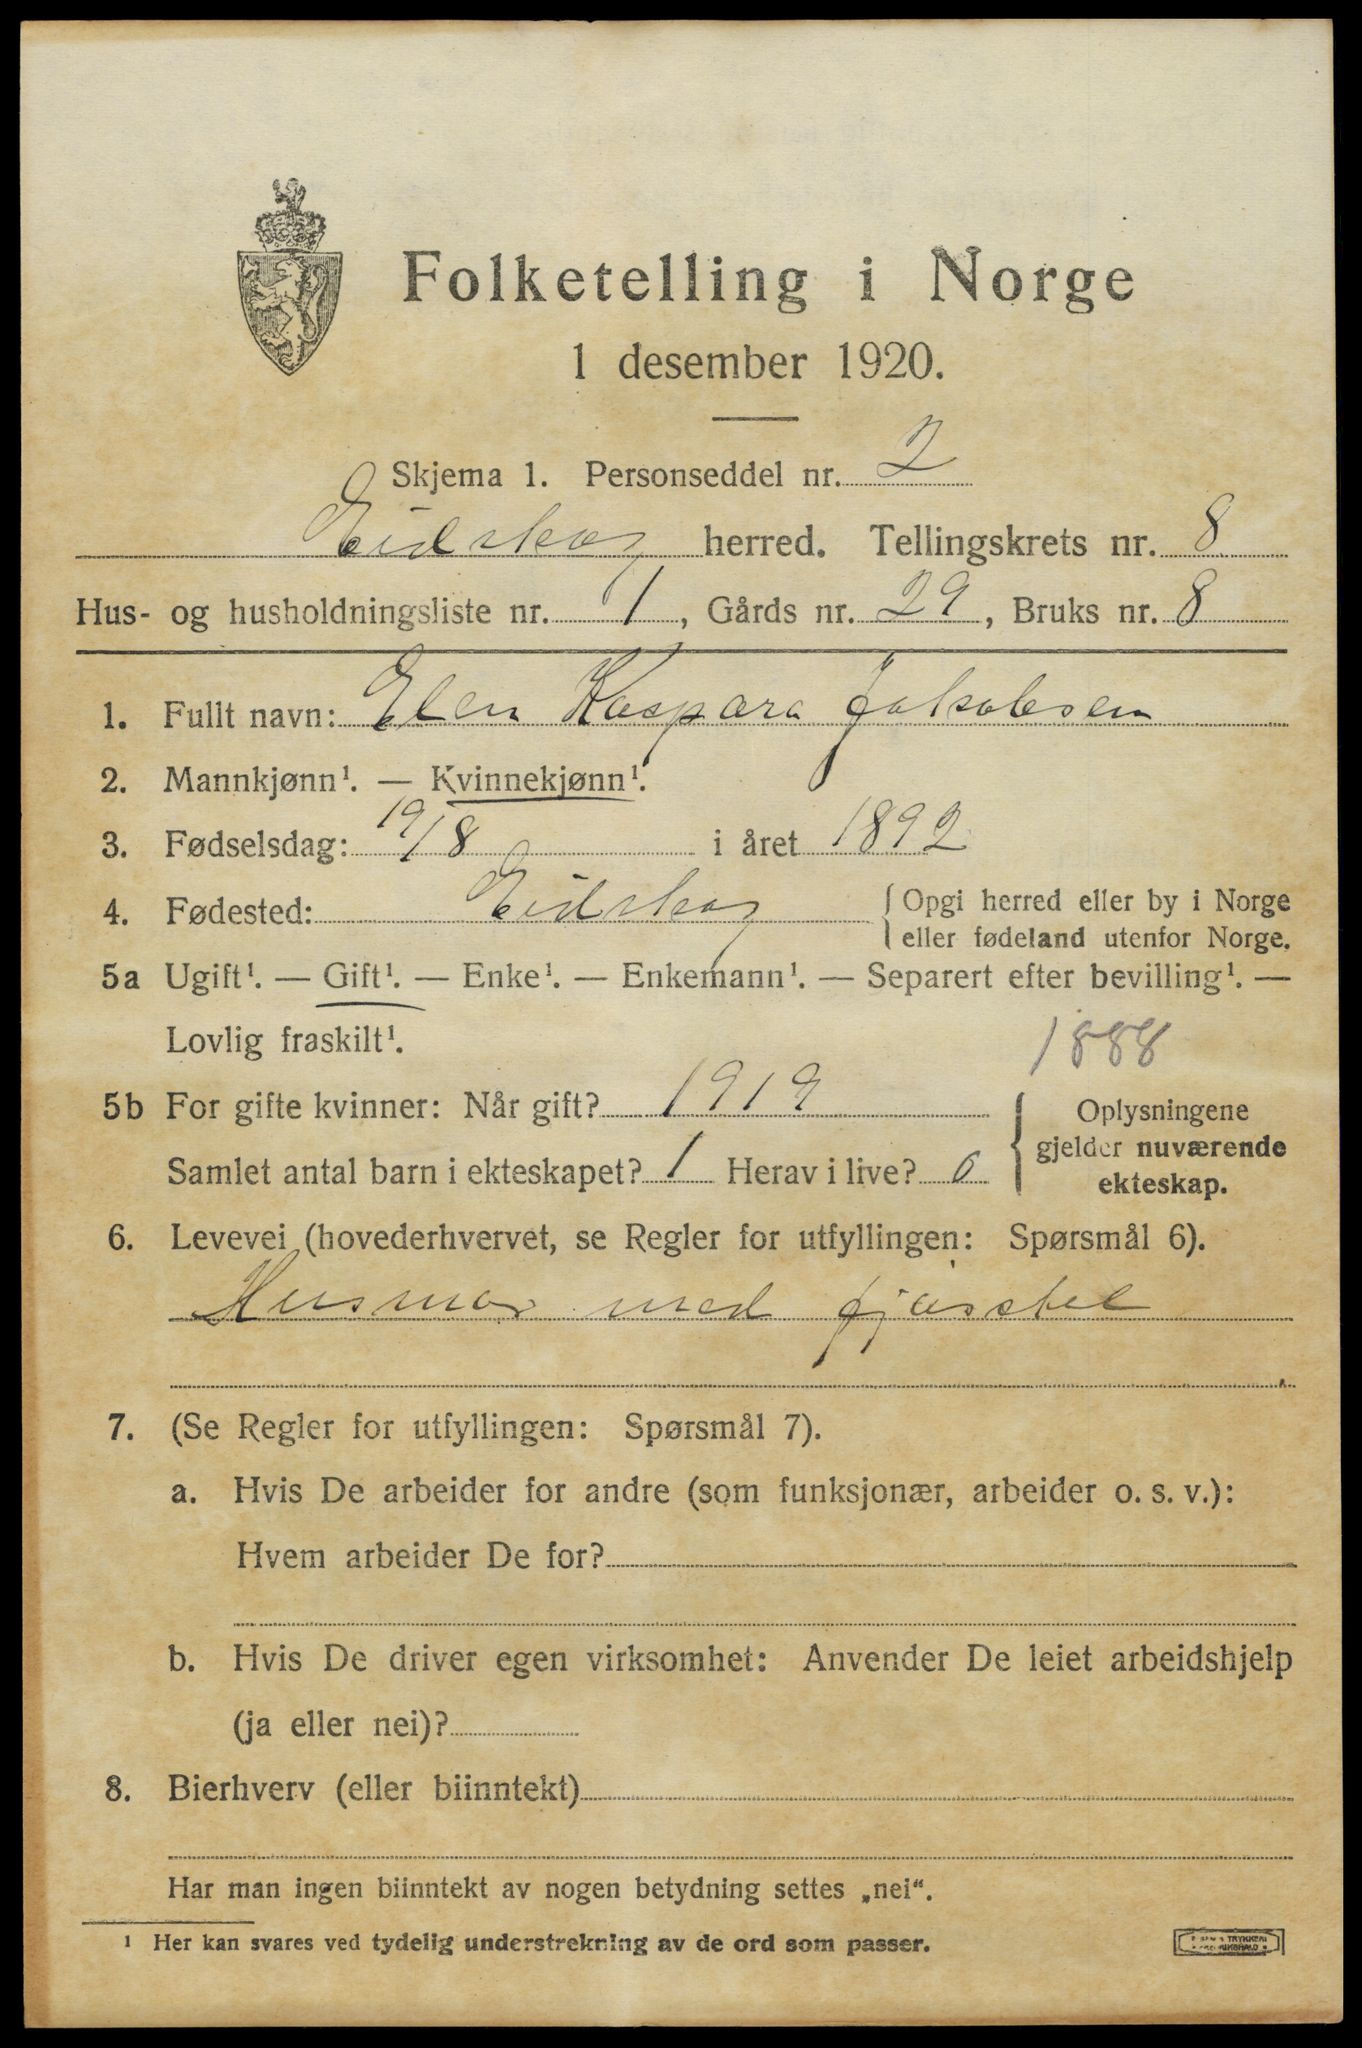 Folketelling i Norge
1 desember 1920.
Skjema 1. Personseddel nr. 2
Eidskog herred. Tellingskrets nr. 8
Hus- og husholdningsliste nr. 1, Gårds nr. 29, Bruks nr. 8
1. Fullt navn: Elen Kaspara Jakobsen
2. Mannkjønn¹. — Kvinnekjønn¹.
3. Fødselsdag: 19/8 i året 1892
4. Fødested: Eidskog { Opgi herred eller by i Norge
eller fødeland utenfor Norge.
5a Ugift¹. — Gift¹. — Enke¹. — Enkemann¹. — Separert efter bevilling¹. —
Lovlig fraskilt¹.
1888
5b For gifte kvinner: Når gift? 1919
Samlet antal barn i ekteskapet? 1 Herav i live? 0
{ Oplysningene
gjelder nuværende
ekteskap.
6. Levevei (hovederhvervet, se Regler for utfyllingen: Spørsmål 6).
Husmor med fjøsstel
7. (Se Regler for utfyllingen: Spørsmål 7).
a. Hvis De arbeider for andre (som funksjonær, arbeider o. s. v.):
Hvem arbeider De for?
b. Hvis De driver egen virksomhet: Anvender De leiet arbeidshjelp
(ja eller nei)?
8. Bierhverv (eller biinntekt)
Har man ingen biinntekt av nogen betydning settes „nei“.
¹ Her kan svares ved tydelig understrekning av de ord som passer.